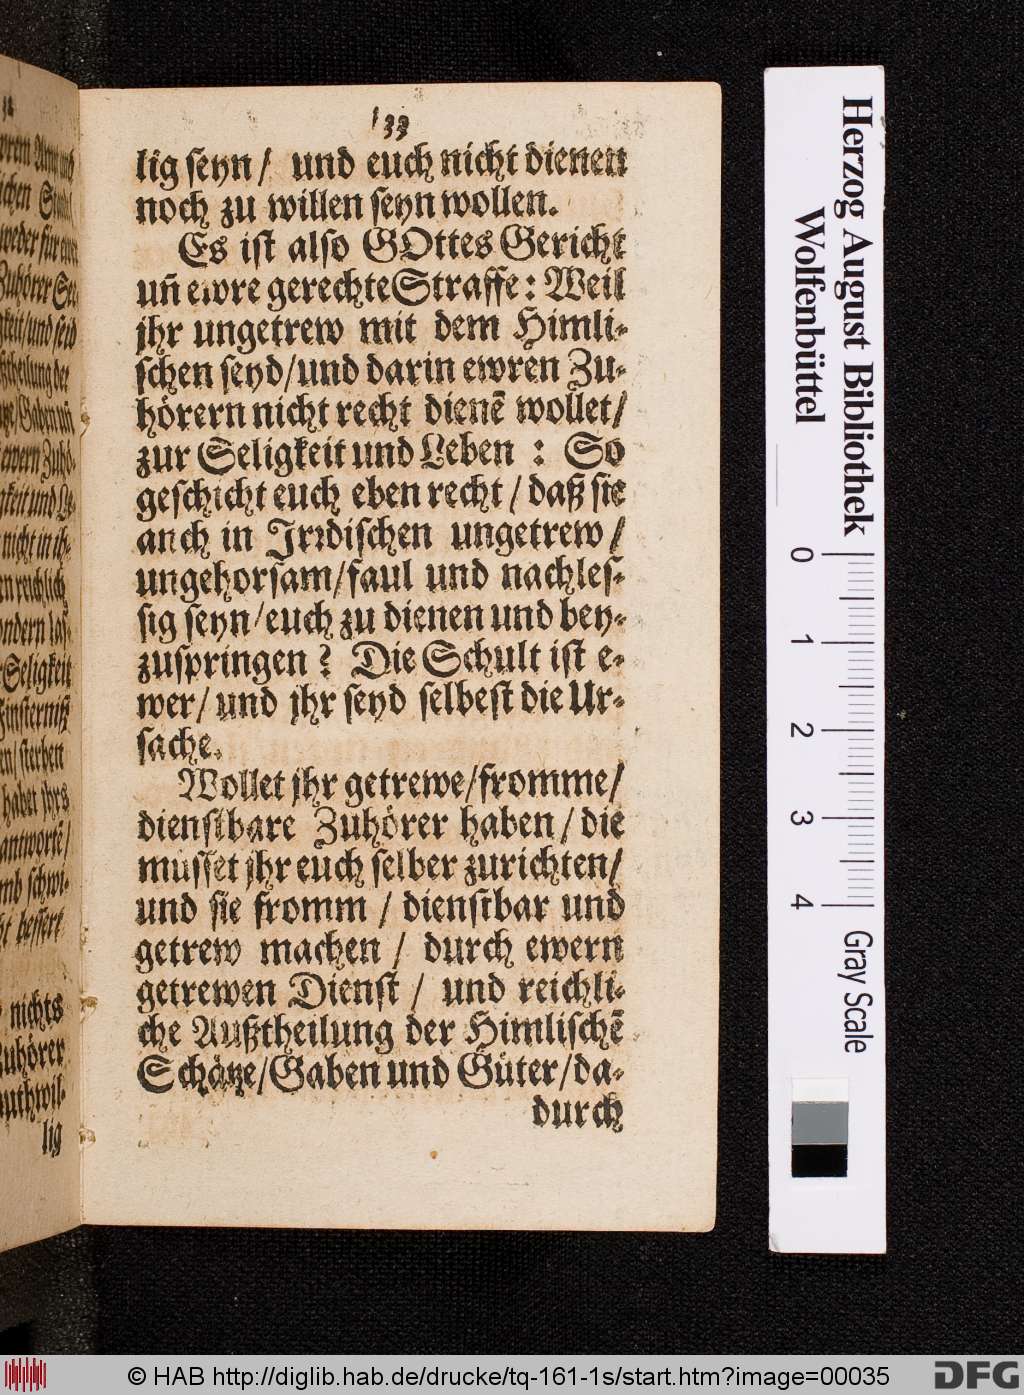 33
lig seyn / und euch nicht dienen
noch zu willen seyn wollen.
Es ist also GOttes Gericht
uñ ewre gerechte Straffe: Weil
jhr ungetrew mit dem Himli-
schen seyd/und darin ewren Zu-
hörern nicht recht dienẽ wollet/
zur Seligkeit und Leben : So
geschicht euch eben recht / daß sie
auch in Irrdischen ungetrew /
ungehorsam/faul und nachles-
sig seyn/euch zu dienen und bey-
zuspringen? Die Schult ist e-
wer/ und jhr seyd selbest die Ur-
sache.
Wollet jhr getrewe/fromme/
dienstbare Zuhörer haben / die
müsset jhr euch selber zurichten/
und sie fromm / dienstbar und
getrew machen / durch ewern
getrewen Dienst / und reichli-
che Außtheilung der Himlischẽ
Schätze/Gaben und Güter/da-
durch
nichts
lig
Herzog August Bibliothek
Wolfenbüttel
0
1
2
3
4
Gray Scale
© HAB http://diglib.hab.de/drucke/tq-161-1s/start.htm?image=00035
DFG